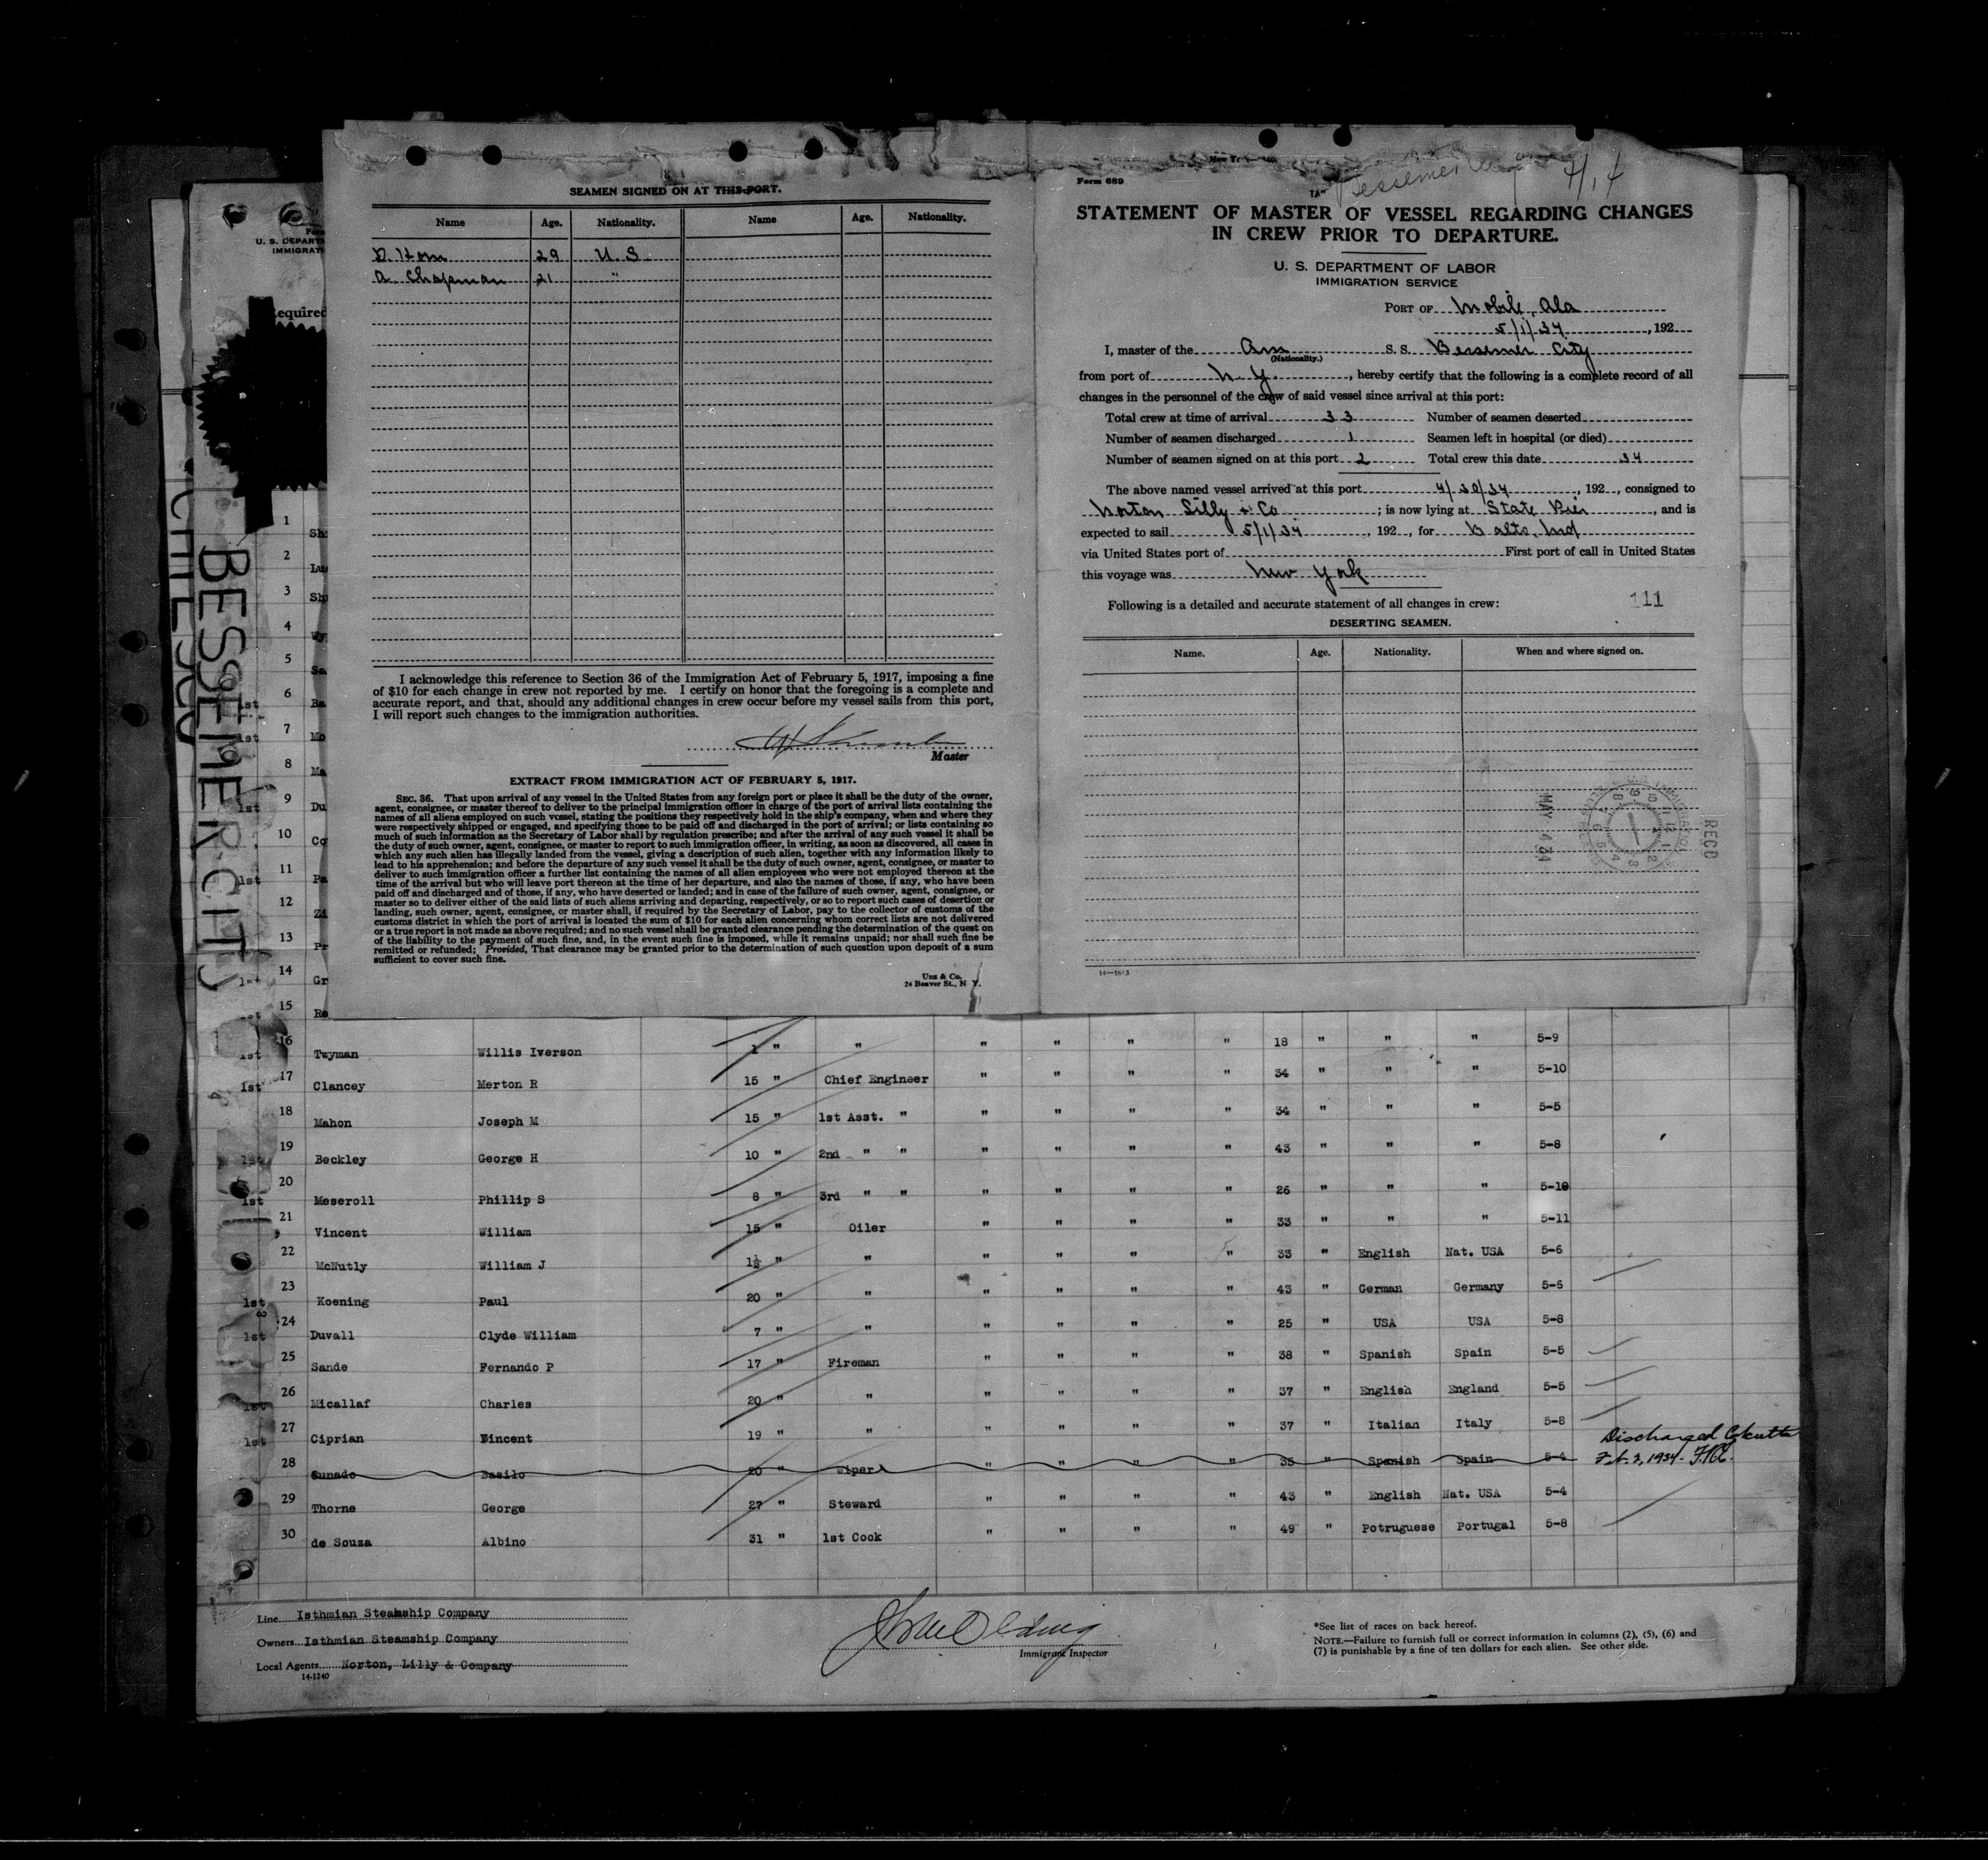 SEAMEN SIGNED ON AT THIS PORT.
Name Age. Nationality. Name Age. Nationality.
D. Horn 29 U. S
A. Chapman 21 "
I acknowledge this reference to Section 36 of the Immigration Act of February 5, 1917, imposing a fine
of $10 for each change in crew not reported by me. I certify on honor that the foregoing is a complete and
accurate report, and that, should any additional changes in crew occur before my vessel sails from this port,
I will report such changes to the immigration authorities.
Master
EXTRACT FROM IMMIGRATION ACT OF FEBRUARY 5, 1917.
SEC. 36. That upon arrival of any vessel in the United States from any foreign port or place it shall be the duty of the owner,
agent, consignee, or master thereof to deliver to the principal immigration officer in charge of the port of arrival lists containing the
names of all aliens employed on such vessel, stating the positions they respectively hold in the ship's company, when and where they
were respectively shipped or engaged, and specifying those to be paid off and discharged in the port of arrival; or lists containing so
much of such information as the Secretary of Labor shall by regulation prescribe; and after the arrival of any such vessel it shall be
the duty of such owner, agent, consignee, or master to report to such immigration officer, in writing, as soon as discovered, all cases in
which any such alien has illegally landed from the vessel, giving a description of such alien, together with any information likely to
lead to his apprehension; and before the departure of any such vessel it shall be the duty of such owner, agent, consignee, or master to
deliver to such immigration officer a further list containing the names of all alien employees who were not employed thereon at the
time of the arrival but who will leave port thereon at the time of her departure, and also the names of those, if any, who have been
paid off and discharged and of those, if any, who have deserted or landed; and in case of the failure of such owner, agent, consignee, or
master so to deliver either of the said lists of such aliens arriving and departing, respectively, or so to report such cases of desertion or
landing, such owner, agent, consignee, or master shall, if required by the Secretary of Labor, pay to the collector of customs of the
customs district in which the port of arrival is located the sum of $10 for each alien concerning whom correct lists are not delivered
or a true report is not made as above required; and no such vessel shall be granted clearance pending the determination of the quest on
of the liability to the payment of such fine, and, in the event such fine is imposed, while it remains unpaid; nor shall such fine be
remitted or refunded; Provided, That clearance may be granted prior to the determination of such question upon deposit of a sum
sufficient to cover such fine.
Unz & Co.
24 Beaver St., N Y.
Form 689
Bessemer City 4/14
STATEMENT OF MASTER OF VESSEL REGARDING CHANGES
IN CREW PRIOR TO DEPARTURE.
U. S. DEPARTMENT OF LABOR
IMMIGRATION SERVICE
PORT OF Mobile, Ala
5/1/34, 192
I, master of the Am S. S. Bessemer City
(Nationality.)
from port of N. Y., hereby certify that the following is a complete record of all
changes in the personnel of the crew of said vessel since arrival at this port:
Total crew at time of arrival 33 Number of seamen deserted
Number of seamen discharged 1 Seamen left in hospital (or died)
Number of seamen signed on at this port 2 Total crew this date 34
The above named vessel arrived at this port 4/30/34, 192, consigned to
Norton Lilly & Co; is now lying at State Pier, and is
expected to sail 5/1/34, 192, for Balto. Md
via United States port of First port of call in United States
this voyage was New York
Following is a detailed and accurate statement of all changes in crew: 111
DESERTING SEAMEN.
Name. Age. Nationality. When and where signed on.
RECD
MAY 4 34
14—1613
U. S. DEPART
IMMIGRAT
Required
BESSEMER CITY
1 Sh
2 Lu
3 Sh
4 Wy
5 Sa
1st 6 Ba
1st 7 Mo
8 Ma
1st 9 Du
10 Co
1st 11 Pa
12 Zi
13 Pr
1st 14 Gr
15 Re
1st 16 Twyman Willis Iverson 1 " " " " " " 18 " " " 5-9
1st 17 Clancey Merton R 15 " Chief Engineer " " " " 34 " " " 5-10
18 Mahon Joseph M 15 " 1st Asst. " " " " " 34 " " " 5-5
1st 19 Beckley George H 10 " 2nd " " " " " " 43 " " " 5-8
1st 20 Meseroll Phillip S 8 " 3rd " " " " " " 26 " " " 5-10
21 Vincent William 15 " Oiler " " " " 33 " " " 5-11
22 McNutly William J 1½ " " " " " " 33 " English Nat. USA 5-6
1st 23 Koening Paul 20 " " " " " " 43 " German Germany 5-6
1st 24 Duvall Clyde William 7 " " " " " " 25 " USA USA 5-8
25 Sande Fernando P 17 " Fireman " " " " 38 " Spanish Spain 5-5
1st 26 Micallaf Charles 20 " " " " " " 37 " English England 5-5
1st 27 Ciprian Vincent 19 " " " " " " 37 " Italian Italy 5-8
28 Cunado Basilo 20 " Wiper " " " " 35 " Spanish Spain 5-4 Discharged Calcutta
Feb. 2, 1934.
29 Thorne George 27 " Steward " " " " 43 " English Nat. USA 5-4
30 de Souza Albino 31 " 1st Cook " " " " 49 " Potruguese Portugal 5-8
Line Isthmian Steamship Company
Owners Isthmian Steamship Company
Local Agents Norton, Lilly & Company
14-1240
Immigrant Inspector
*See list of races on back hereof.
NOTE.—Failure to furnish full or correct information in columns (2), (5), (6) and
(7) is punishable by a fine of ten dollars for each alien. See other side.